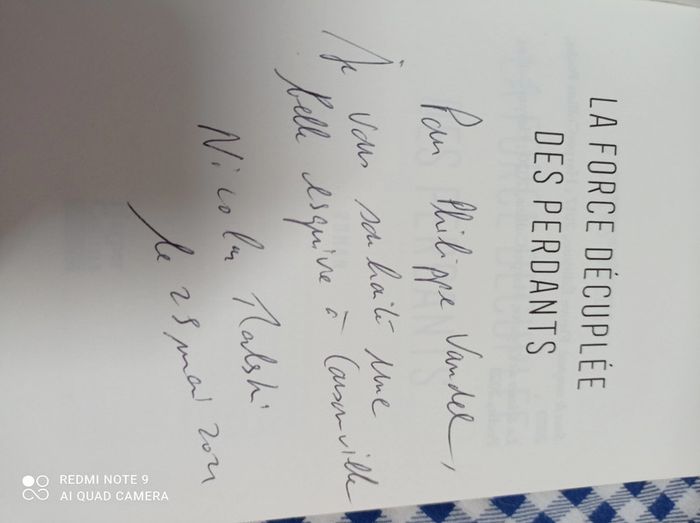 LA FORCE DÉCUPLÉE
DES PERDANTS
Pour Philippe Vandel,
Je vous souhaite une
belle esquive à
Nicolas
le 25 mai 2021
REDMI NOTE 9
AI QUAD CAMERA